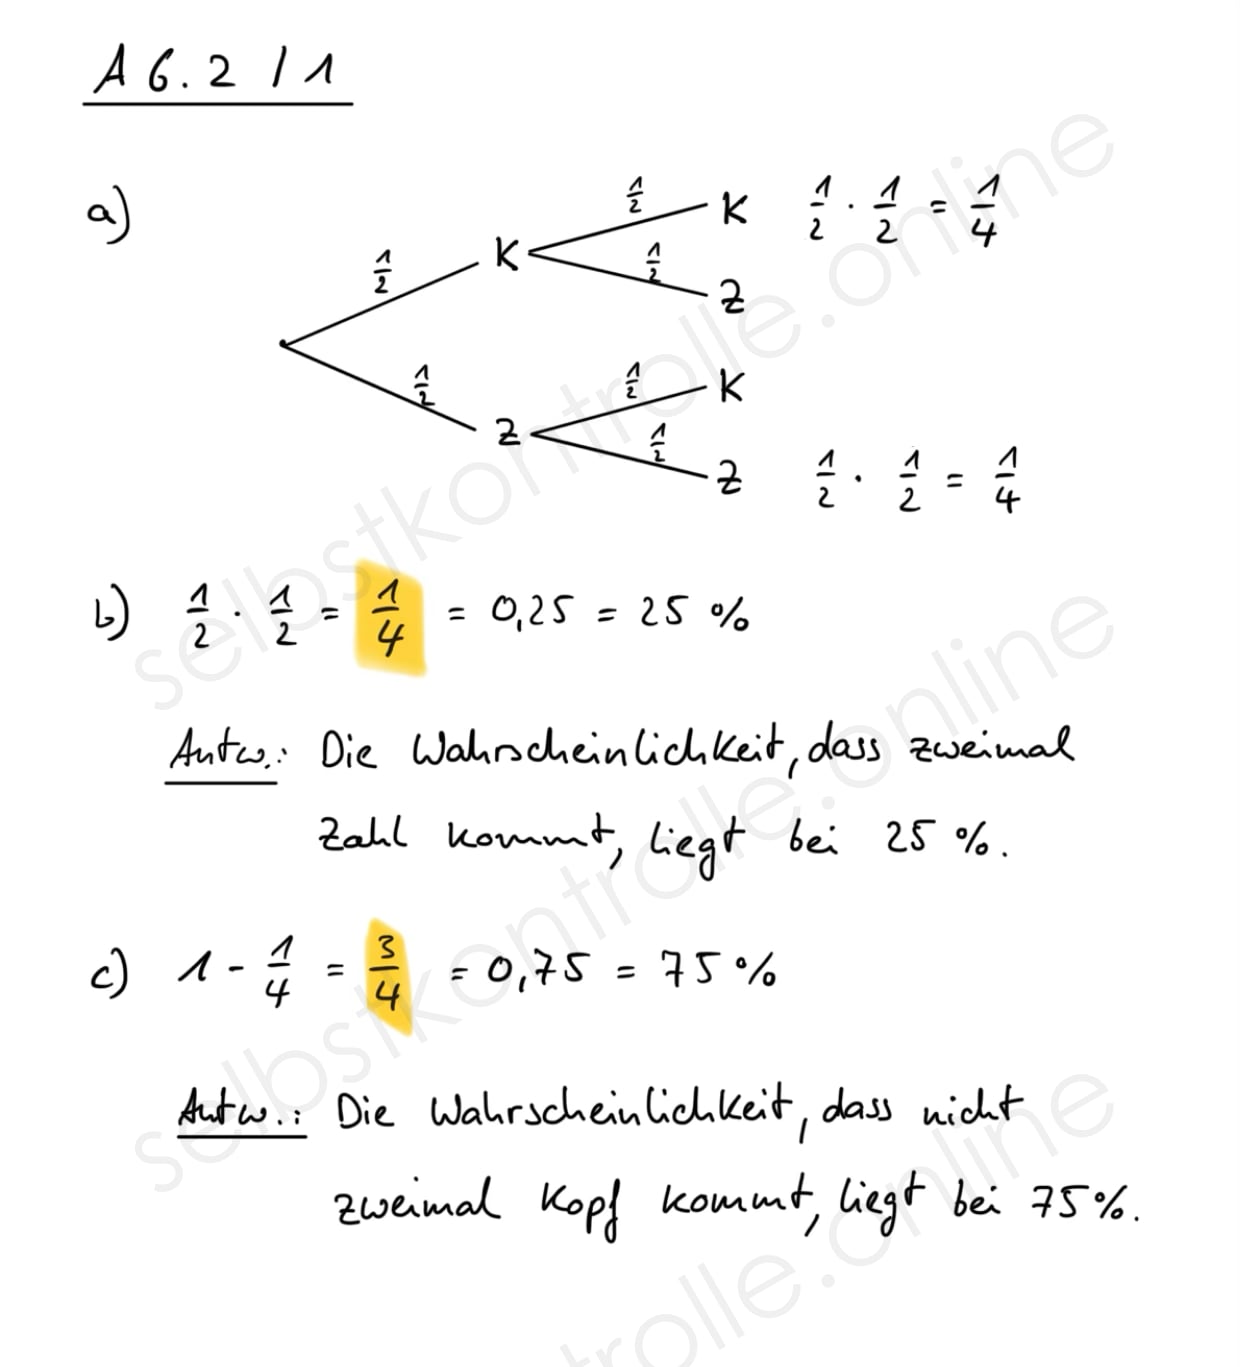 A 6.2 / 1
a)
1/2 K 1/2 K 1/2 · 1/2 = 1/4
1/2 Z
1/2 Z 1/2 K
1/2 Z 1/2 · 1/2 = 1/4
b) 1/2 · 1/2 = 1/4 = 0,25 = 25 %
Antw.: Die Wahrscheinlichkeit, dass zweimal
Zahl kommt, liegt bei 25 %.
c) 1 - 1/4 = 3/4 = 0,75 = 75 %
Antw.: Die Wahrscheinlichkeit, dass nicht
zweimal Kopf kommt, liegt bei 75%.
selbstkontrolle.online
selbstkontrolle.online
trolle.online